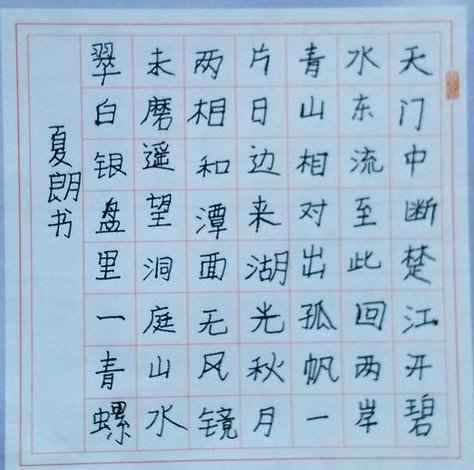 天门中断楚江开碧
水东流至此回两岸
青山相对出孤帆一
片日边来湖光秋月
两相和潭面无风镜
未磨遥望洞庭山水
翠白银盘里一青螺
夏朗书